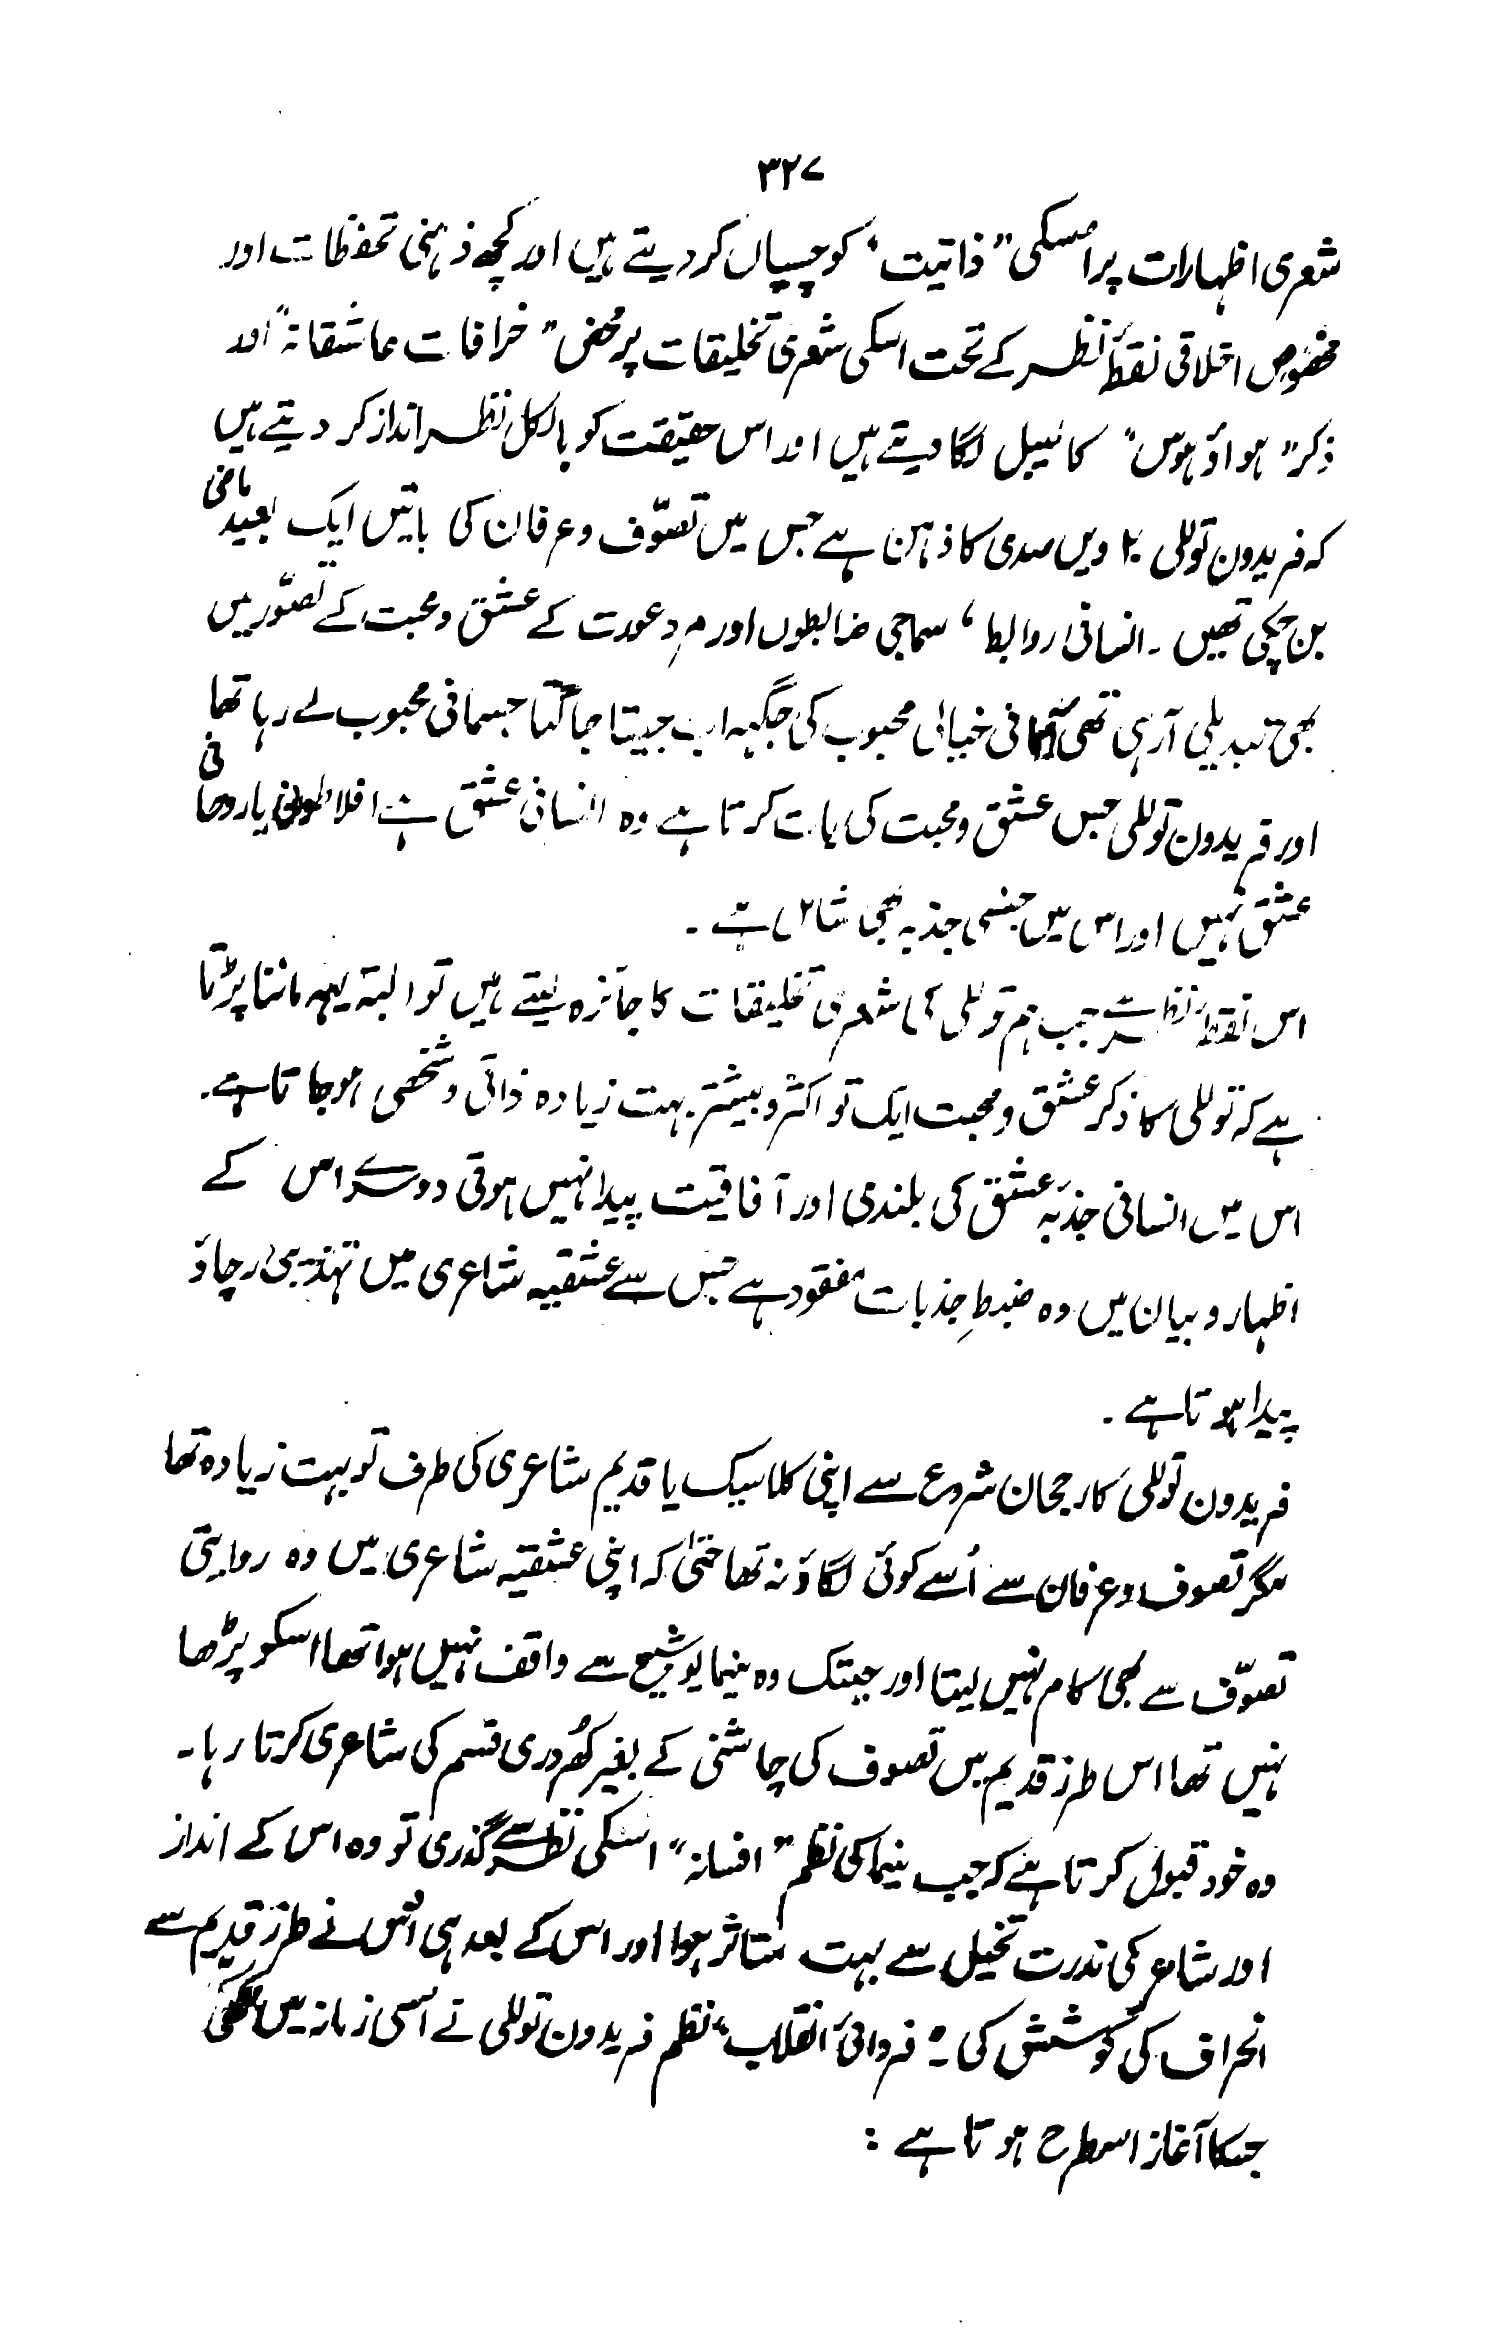 ۳۲۷
شعری اظہارات پر اسکی "ذاتیت" کو چسپاں کر دیتے ہیں اور کچھ ذہنی تحفظات اور
مخصوص اخلاقی نقطۂ نظر کے تحت اسکی شعری تخلیقات پر محض "خرافات عاشقانہ" اور
ذکر "ہواؤ ہوس" کا لیبل لگا دیتے ہیں اور اس حقیقت کو بالکل نظر انداز کر دیتے ہیں
کہ فریدون توللی ۲۰ ویں صدی کا ذہن ہے جس میں تصوّف و عرفان کی باتیں ایک بعید ماضی
بن چکی تھیں ۔ انسانی روابط ، سماجی ضابطوں اور مرد عورت کے عشق و محبت کے تصوّر میں
بھی تبدیلی آرہی تھی خیالی محبوب کی جگہہ اب جیتا جاگتا جسمانی محبوب لے رہا تھا
اور فریدون توللی جس عشق و محبت کی بات کرتا ہے وہ انسانی عشق ہے افلاطونی یا روحانی
عشق نہیں اور اس میں جنسی جذبہ بھی شامل ہے ۔
اس نقطۂ نظر سے جب ہم توللی کی شعری تخلیقات کا جائزہ لیتے ہیں تو البتہ یہہ ماننا پڑتا
ہے کہ توللی کا ذکر عشق و محبت ایک تو اکثر و بیشتر بہت زیادہ ذاتی و شخصی ہو جاتا ہے ۔
اس میں انسانی جذبۂ عشق کی بلندی اور آفاقیت پیدا نہیں ہوتی دوسرے اس کے
اظہار و بیان میں وہ ضبطِ جذبات مفقود ہے جس سے عشقیہ شاعری میں تہذیبی رچاؤ
پیدا ہوتا ہے ۔
فریدون توللی کا رجحان شروع سے اپنی کلاسیک یا قدیم شاعری کی طرف تو بہت زیادہ تھا
مگر تصوف و عرفان سے اُسے کوئی لگاؤ نہ تھا حتیٰ کہ اپنی عشقیہ شاعری میں وہ روایتی
تصوّف سے بھی کام نہیں لیتا اور جبتک وہ نیما یوشیج سے واقف نہیں ہوا تھا اسکو پڑھا
نہیں تھا اس طرز قدیم میں تصوف کی چاشنی کے بغیر کھُردری قسم کی شاعری کرتا رہا ۔
وہ خود قبول کرتا ہے کہ جب نیما کی نظم "افسانہ" اسکی نظر سے گذری تو وہ اس کے انداز
اور شاعر کی ندرت تخیل سے بہت متاثر ہوا اور اس کے بعد ہی اُس نے طرز قدیم سے
انحراف کی کوشش کی ۔ "فردائ انقلاب" نظم فریدون توللی نے اسی زمانہ میں لکھی
جسکا آغاز اسطرح ہوتا ہے :